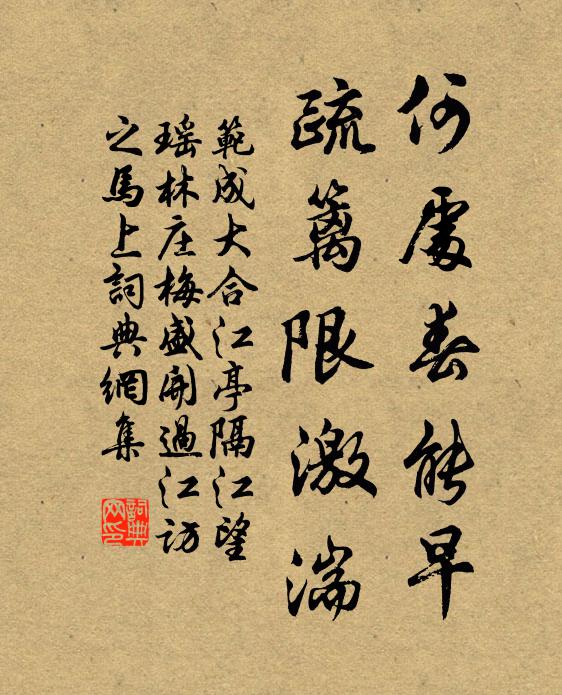 何處春能早
疏籬限激湍
範成大合江亭隔江望
瑶林庄梅盛開過江訪
之馬上詞典網集
詞典
网印